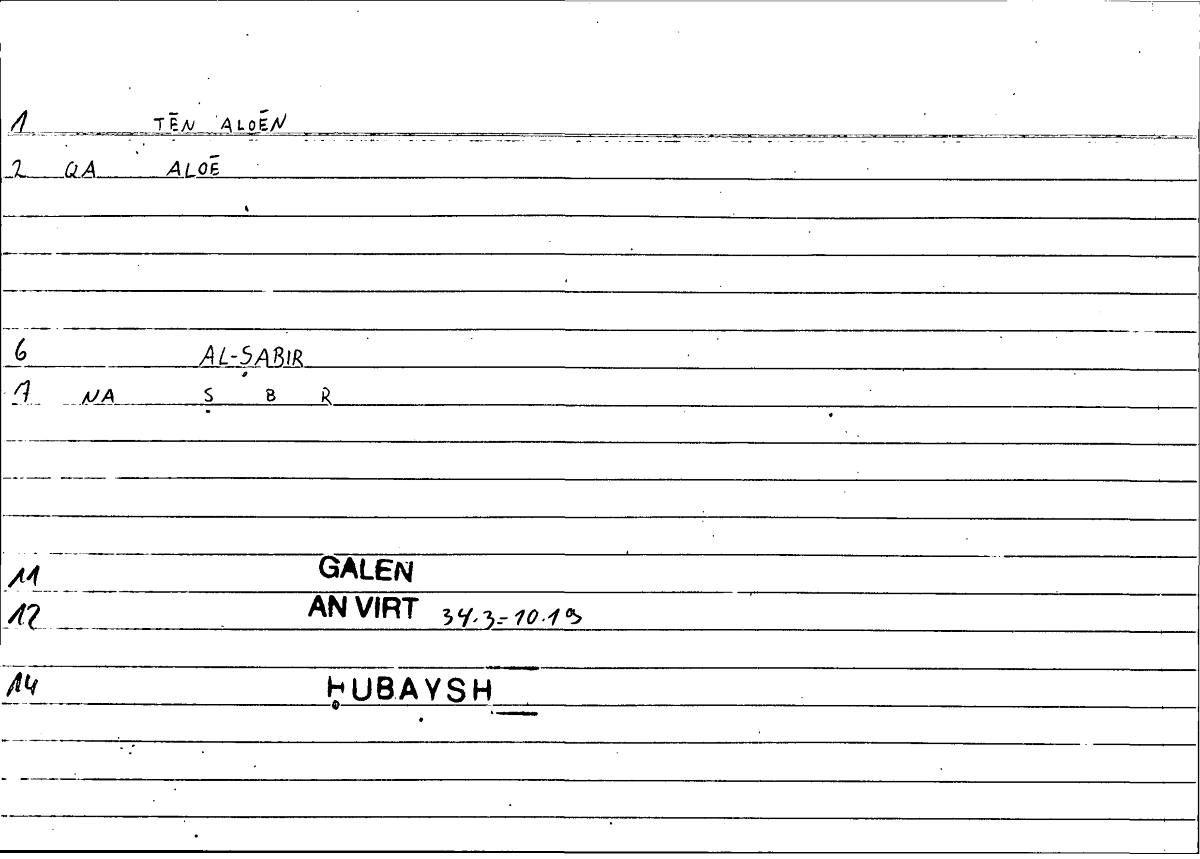 1 TĒN ALOĒN
2 QA ALOĒ
6 AL-ṢABIR
7 NA Ṣ B R
11 GALEN
12 AN VIRT 34.3=10.19
14 ḤUBAYSH